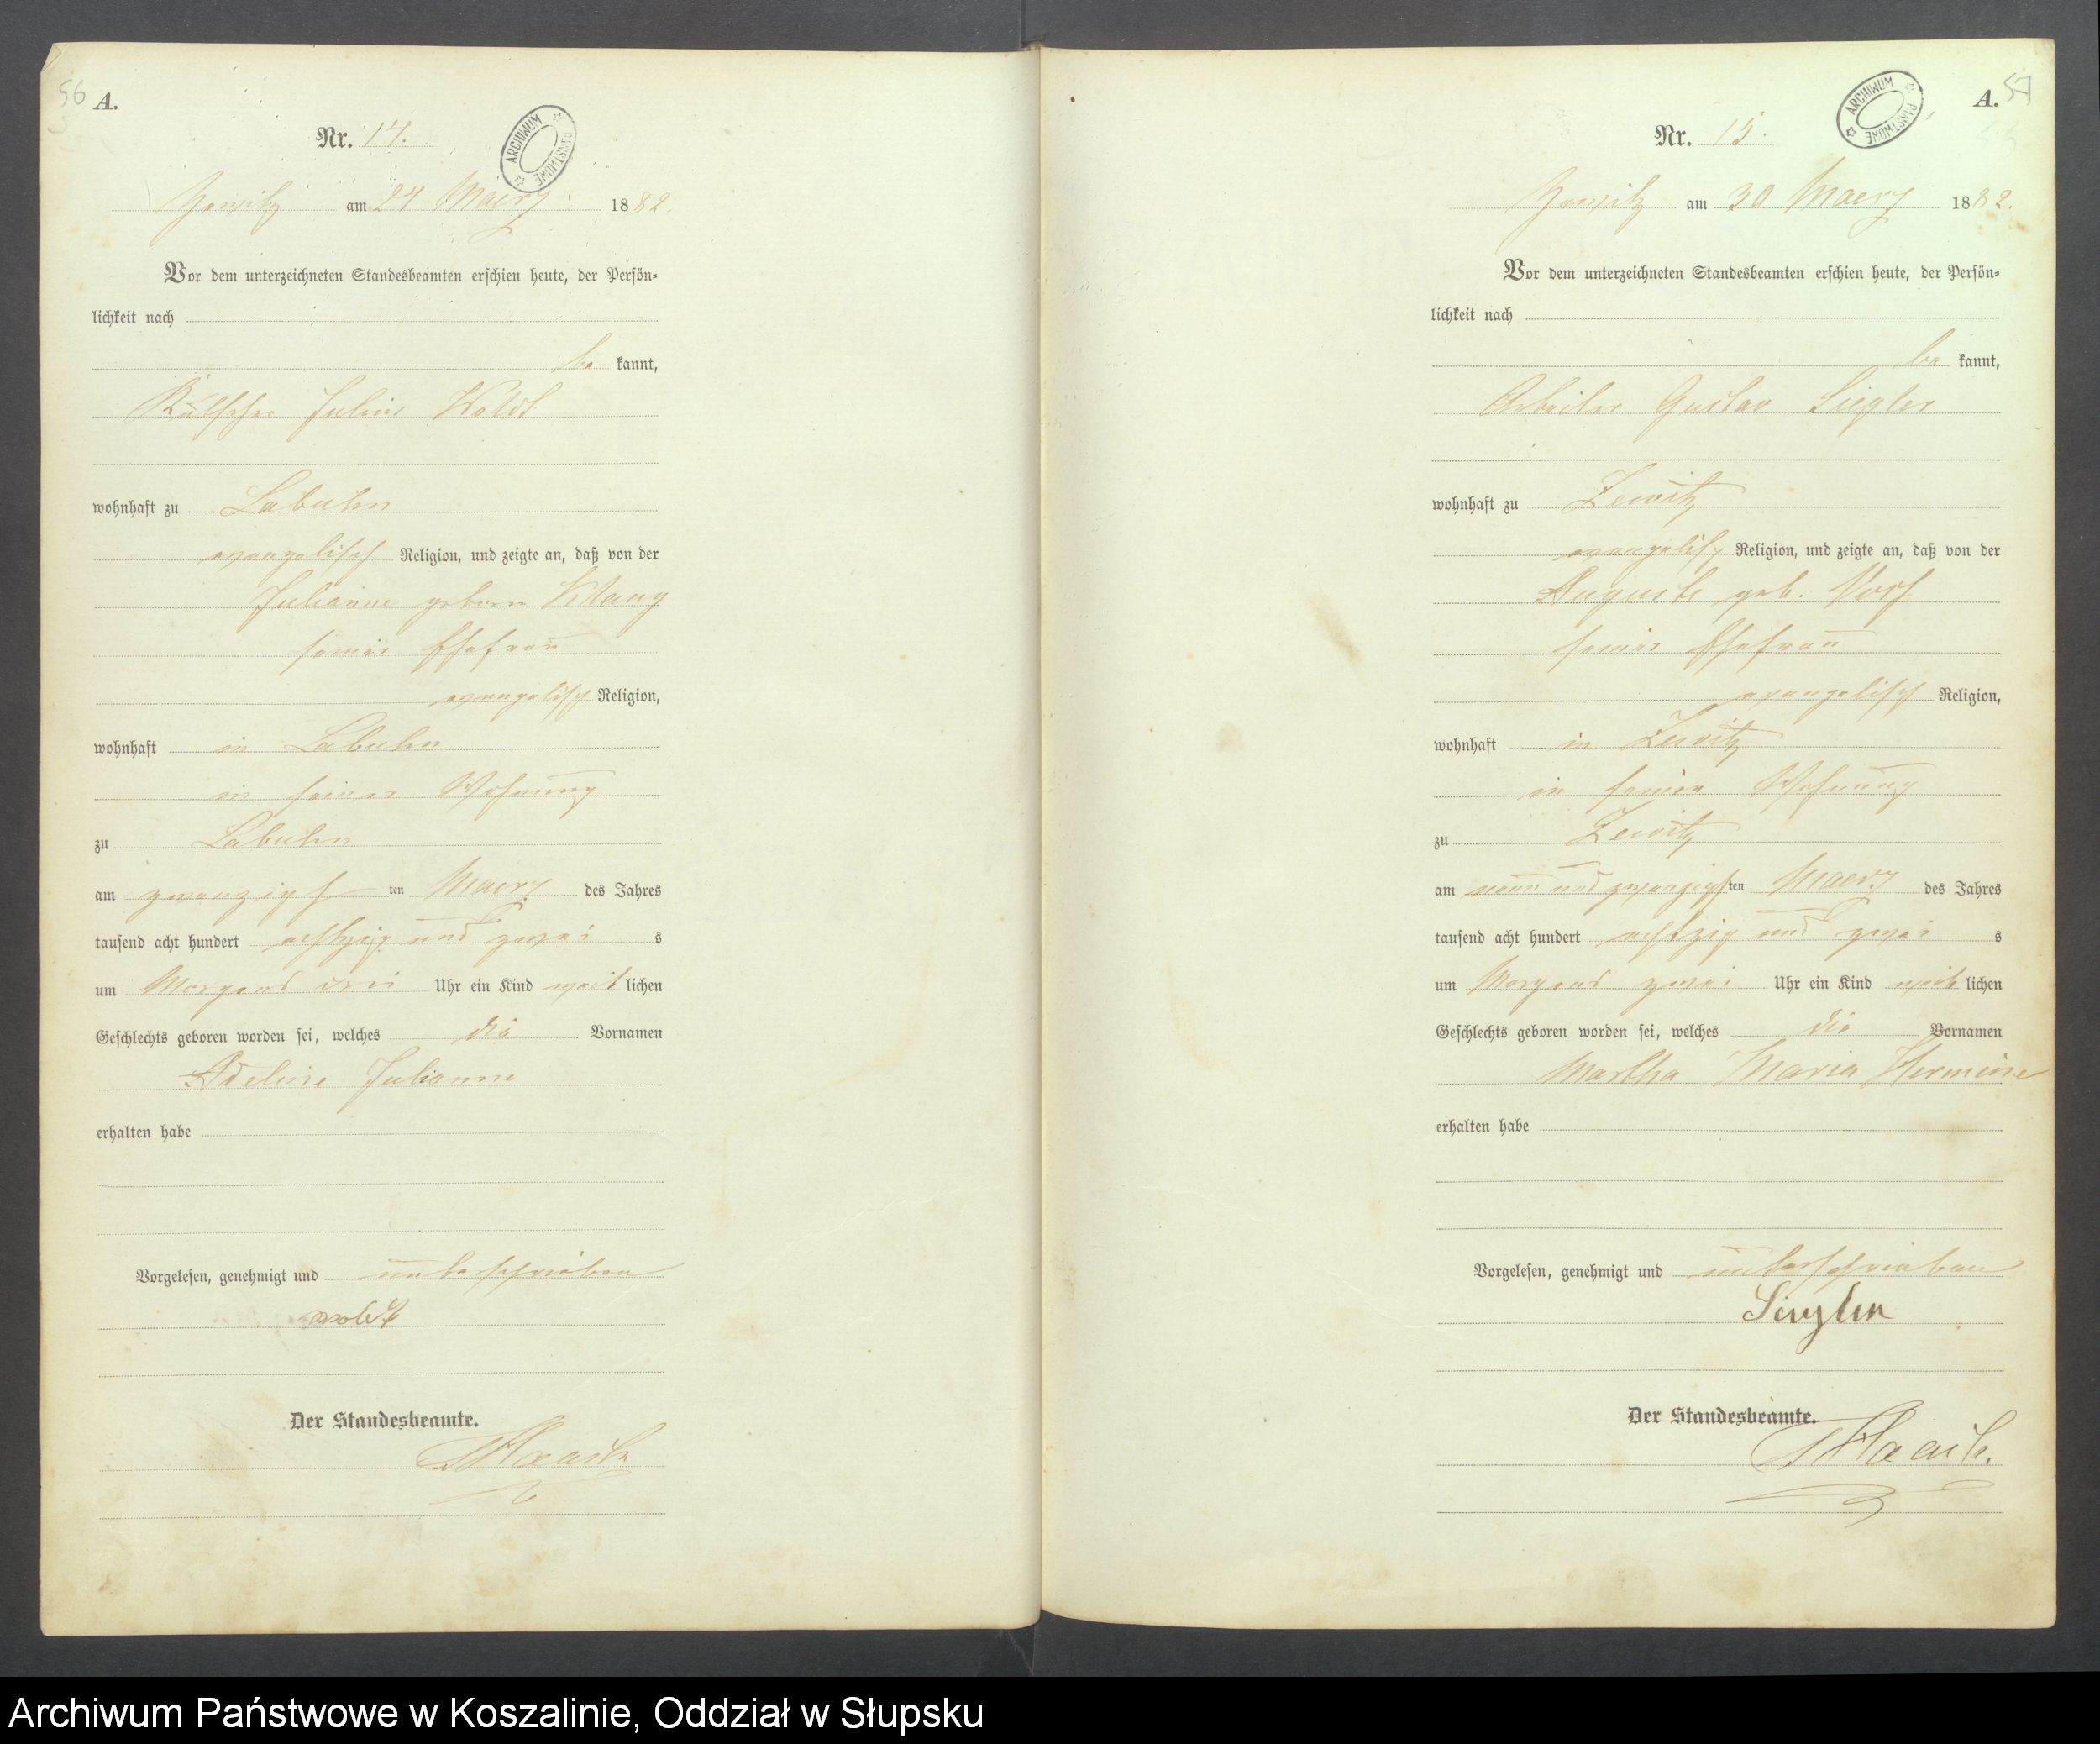 56 A.
Nr. 14.
ARCHIWUM PAŃSTWOWE
Zewitz am 24 Maerz 1882.
Vor dem unterzeichneten Standesbeamten erschien heute, der Persön-
lichkeit nach
be kannt,
Julius Woldt
wohnhaft zu Labuhn
evangelisch Religion, und zeigte an, daß von der
Julianne geborne
seiner Ehefrau
evangelisch Religion,
wohnhaft in Labuhn
in seiner Wohnung
zu Labuhn
am zwanzigsten Maerz des Jahres
tausend acht hundert achtzig und zwei s
um Morgens drei Uhr ein Kind weiblichen
Geschlechts geboren worden sei, welches die Vornamen
Adeline Julianne
erhalten habe
Vorgelesen, genehmigt und unterschrieben
Woldt
Der Standesbeamte.
A. 57
Nr. 15.
ARCHIWUM PAŃSTWOWE
Zewitz am 30 Maerz 1882.
Vor dem unterzeichneten Standesbeamten erschien heute, der Persön-
lichkeit nach
be kannt,
Arbeiter Gustav Siegler
wohnhaft zu Zewitz
evangelisch Religion, und zeigte an, daß von der
Auguste geb.
seiner Ehefrau
evangelisch Religion,
wohnhaft in Zewitz
in seiner Wohnung
zu Zewitz
am neun und zwanzigsten Maerz des Jahres
tausend acht hundert achtzig und zwei s
um Morgens zwei Uhr ein Kind weiblichen
Geschlechts geboren worden sei, welches die Vornamen
Martha Maria Hermine
erhalten habe
Vorgelesen, genehmigt und unterschrieben
Siegler
Der Standesbeamte.
Archiwum Państwowe w Koszalinie, Oddział w Słupsku